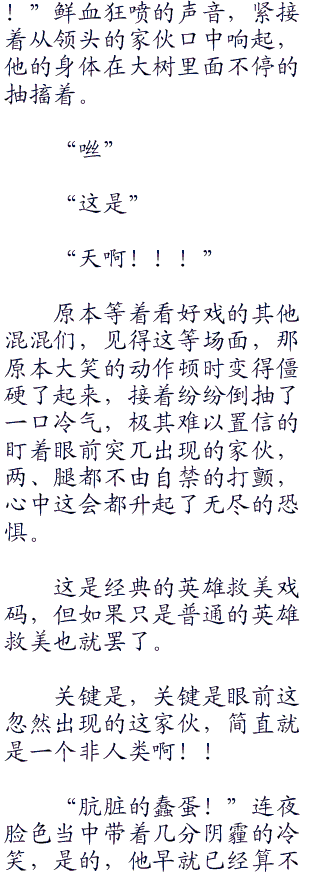 ！”鲜血狂喷的声音，紧接
着从领头的家伙口中响起，
他的身体在大树里面不停的
抽搐着。
“咝”
“这是”
“天啊！！！”
原本等着看好戏的其他
混混们，见得这等场面，那
原本大笑的动作顿时变得僵
硬了起来，接着纷纷倒抽了
一口冷气，极其难以置信的
盯着眼前突兀出现的家伙，
两、腿都不由自禁的打颤，
心中这会都升起了无尽的恐
惧。
这是经典的英雄救美戏
码，但如果只是普通的英雄
救美也就罢了。
关键是，关键是眼前这
忽然出现的这家伙，简直就
是一个非人类啊！！
“肮脏的蠢蛋！”连夜
脸色当中带着几分阴霾的冷
笑，是的，他早就已经算不